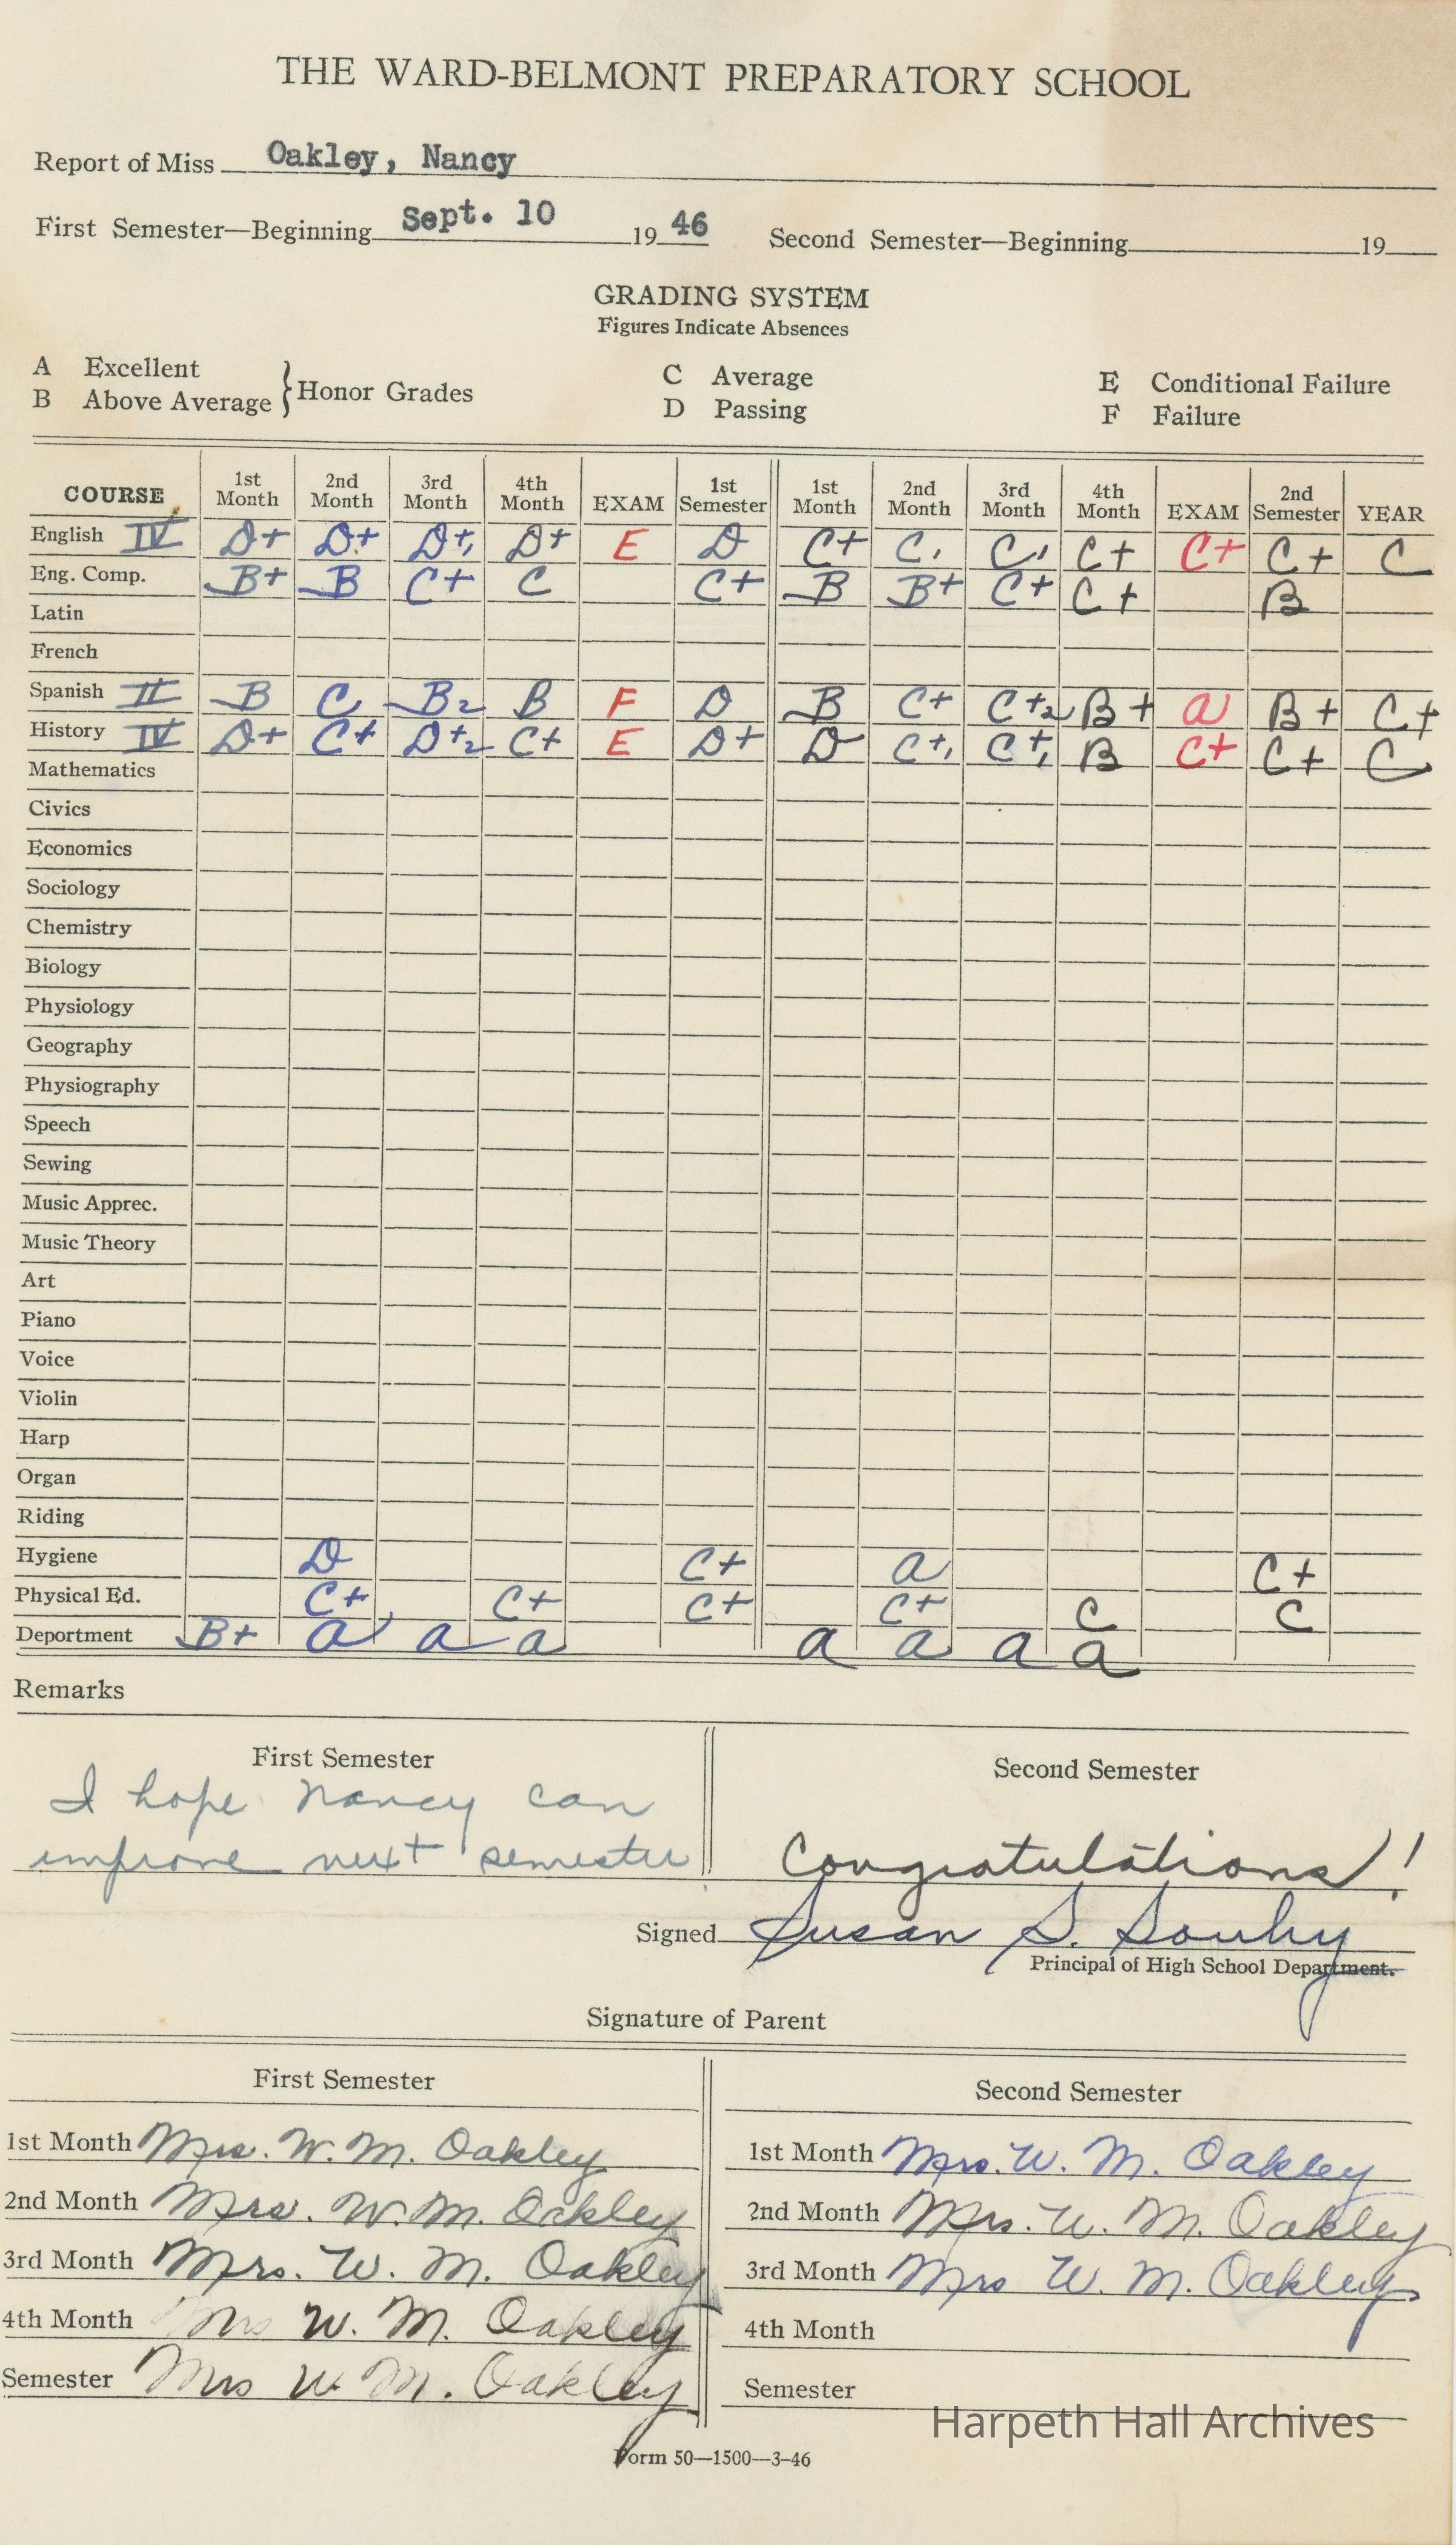 THE WARD-BELMONT PREPARATORY SCHOOL
Report of Miss Oakley, Nancy
First Semester—Beginning Sept. 10 1946 Second Semester—Beginning 19
GRADING SYSTEM
Figures Indicate Absences
A Excellent
B Above Average } Honor Grades
C Average
D Passing
E Conditional Failure
F Failure
COURSE 1st Month 2nd Month 3rd Month 4th Month EXAM 1st Semester 1st Month 2nd Month 3rd Month 4th Month EXAM 2nd Semester YEAR
English IV D+ D+ D+, D+ E D C+ C, C, C+ C+ C+ C
Eng. Comp. B+ B C+ C C+ B B+ C+ C+ B
Latin
French
Spanish II B C B2 B F D B C+ C+2 B+ a B+ C+
History IV D+ C+ D+2 C+ E D+ D C+, C+, B C+ C+ C
Mathematics
Civics
Economics
Sociology
Chemistry
Biology
Physiology
Geography
Physiography
Speech
Sewing
Music Apprec.
Music Theory
Art
Piano
Voice
Violin
Harp
Organ
Riding
Hygiene D C+ a C+
Physical Ed. C+ C+ C+ C+ C C
Deportment B+ a a a a a a a
Remarks
First Semester
I hope Nancy can
improve next semester
Second Semester
Congratulations!
Signed Susan S. Souby
Principal of High School Department.
Signature of Parent
First Semester
1st Month Mrs. W. M. Oakley
2nd Month Mrs. W. M. Oakley
3rd Month Mrs. W. M. Oakley
4th Month Mrs W. M. Oakley
Semester Mrs W. M. Oakley
Second Semester
1st Month Mrs. W. M. Oakley
2nd Month Mrs. W. M. Oakley
3rd Month Mrs W. M. Oakley
4th Month
Semester
Harpeth Hall Archives
Form 50—1500—3-46